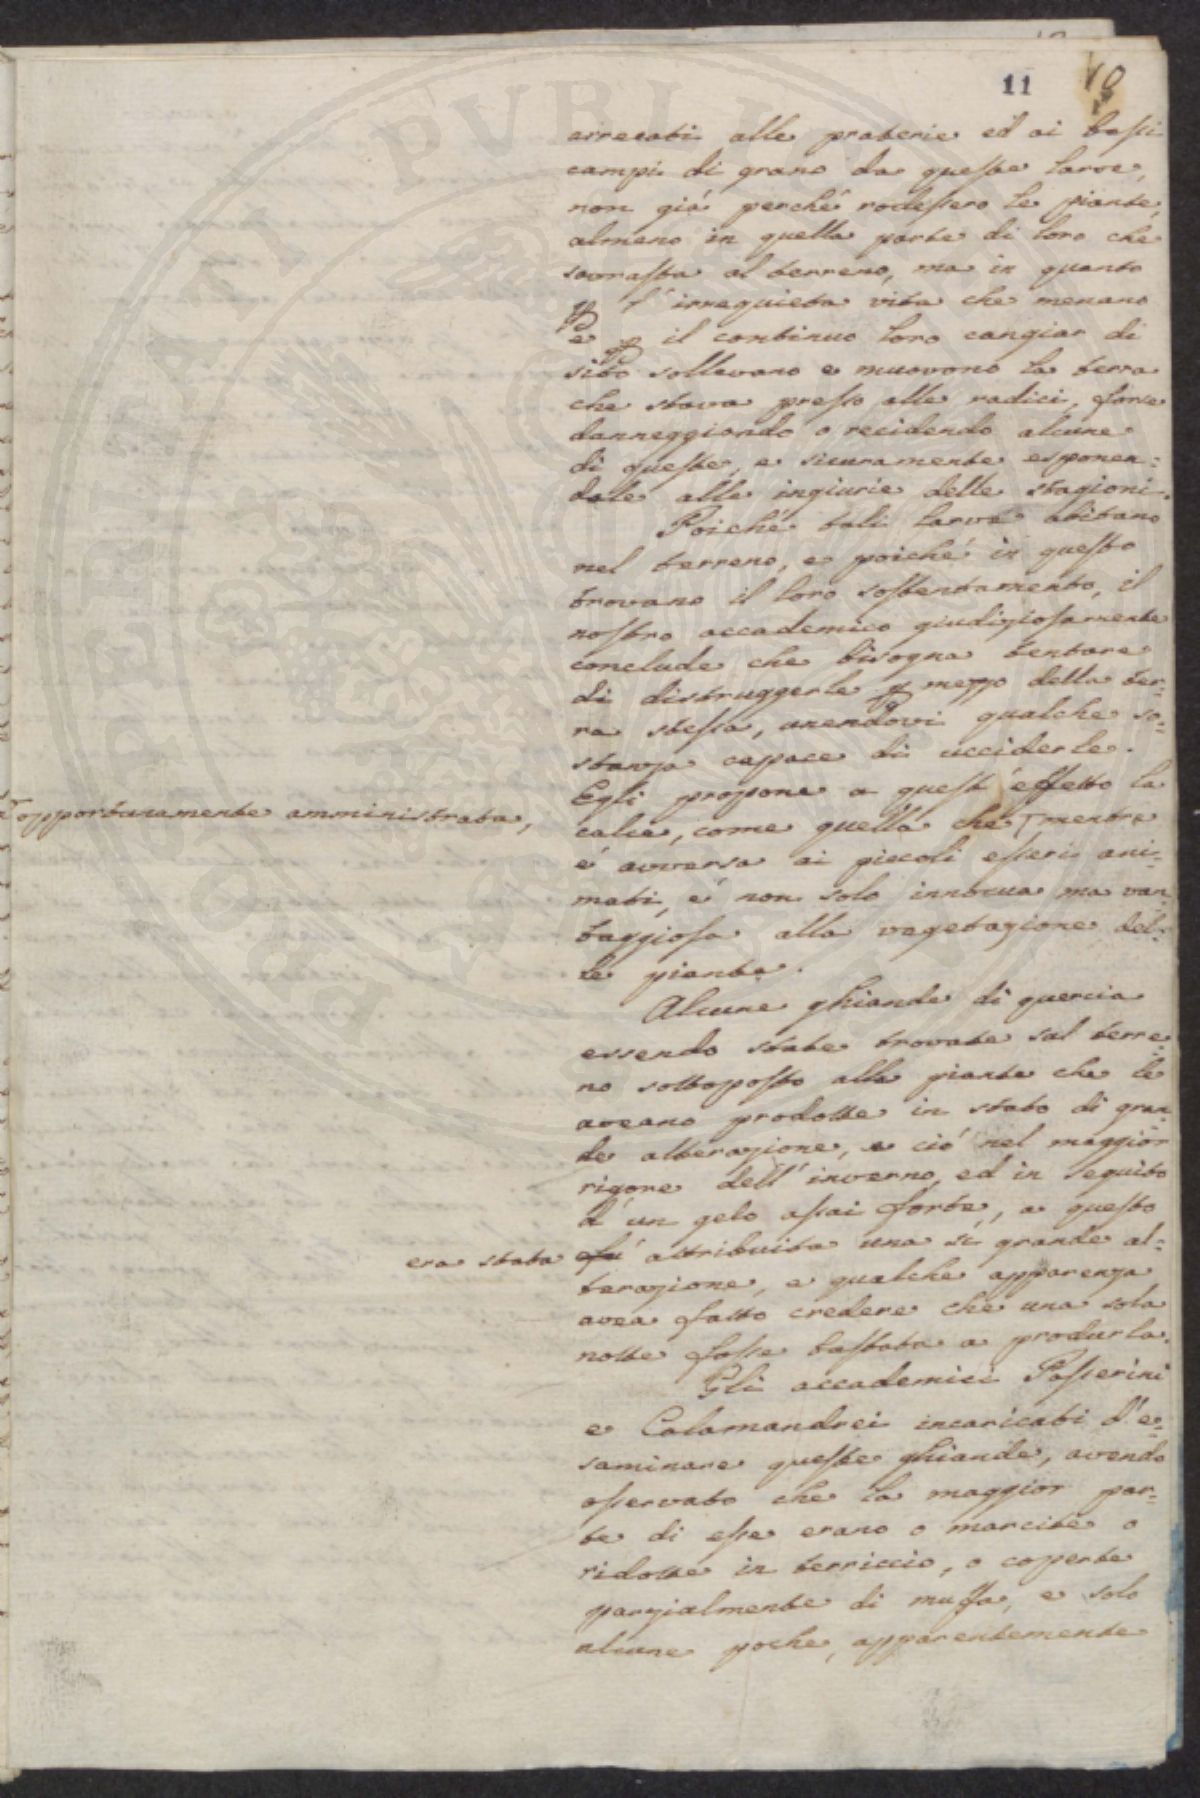 11 10
arrecati alle praterie ed ai bassi
campi di grano da queste larve,
non già perché rodessero le piante,
almeno in quella parte di loro che
sovrasta al terreno, ma in quanto
p l'irrequieta vita che menano
e p il continuo loro cangiar di
sito sollevano e muovono la terra
che stava presso alle radici, forse
danneggiando o recidendo alcune
di queste, e sicuramente esponen=
dole alle ingiurie delle stagioni.
Poiché tali larve abitano
nel terreno, e poiché in questo
trovano il loro sostentamento, il
nostro accademico giudiziosamente
conclude che bisogna tentare
di distruggerle p mezzo della ter=
ra stessa, unendovi qualche so=
stanza capace di ucciderle.
Egli propone a quest'effetto la
calce, come quella che ⌈ mentre
⌈ opportunamente amministrata,
è avversa ai piccoli esseri ani=
mati, è non solo innocua ma van=
taggiosa alla vegetazione del=
le piante.
Alcune ghiande di quercia
essendo state trovate sul terre=
no sottoposto alle piante che le
aveano prodotte in stato di gran=
de alterazione, e ciò nel maggior
rigore dell'inverno, ed in seguito
d'un gelo assai forte, a questo
era stata fu attribuita una sì grande al=
terazione, e qualche apparenza
avea fatto credere che una sola
notte fosse bastata a produrla.
Gli accademici Passerini
e Calamandrei incaricati d'e=
saminare queste ghiande, avendo
osservato che la maggior par=
te di esse erano o marcite o
ridotte in terriccio, o coperte
parzialmente di muffa, e solo
alcune poche, apparentemente
PUBLI TATI